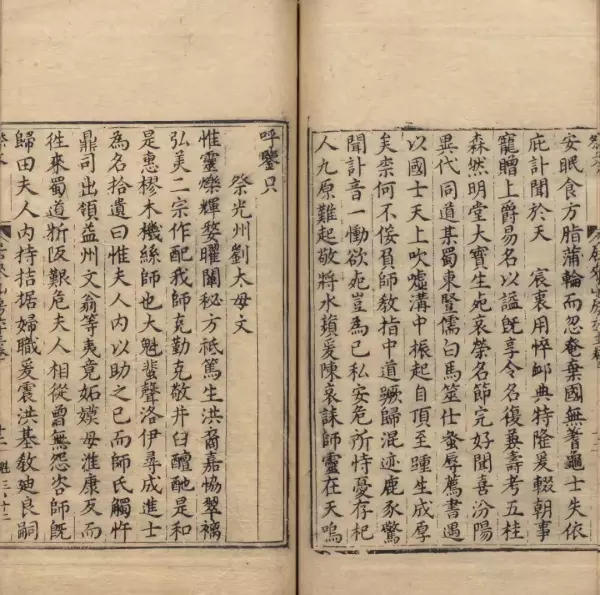 安眠食方脂蒲輪而忽奄棄國無蓍龜士失依
庇訃聞於天　宸衷用悴卹典特隆爰輟朝事
寵贈上爵易名以謚旣享令名復兼壽考五桂
森然明堂大寶生死哀榮名節完好聞喜汾陽
異代同道某蜀東豎儒白馬筮仕蚤辱薦書遇
以國士天上吹嘘溝中振起自頂至踵生成厚
矣柰何不佞負師敎指中道蹶歸混迹鹿豕驚
聞訃音一慟欲死豈爲已私安危所恃憂存杞
人九原難起敬將水蘋爰陳哀誄師靈在天嗚
呼鑒只
祭光州劉太母文
惟靈爍輝婺曜闡秘方祇篤生洪裔嘉協翠褵
弘美二宗作配我師克勤克敬井臼醴酏是和
是惠樛木機絲師也大魁蜚聲洛伊尋成進士
爲名拾遺曰惟夫人內以助之已而師氏觸忤
鼎司出領益州文翁等夷竟妬嫫母淮康友而
徃來蜀道斨阪艱危夫人相從曾無怨咨師旣
歸田夫人內持拮据婦職爰震洪基敎廸良嗣